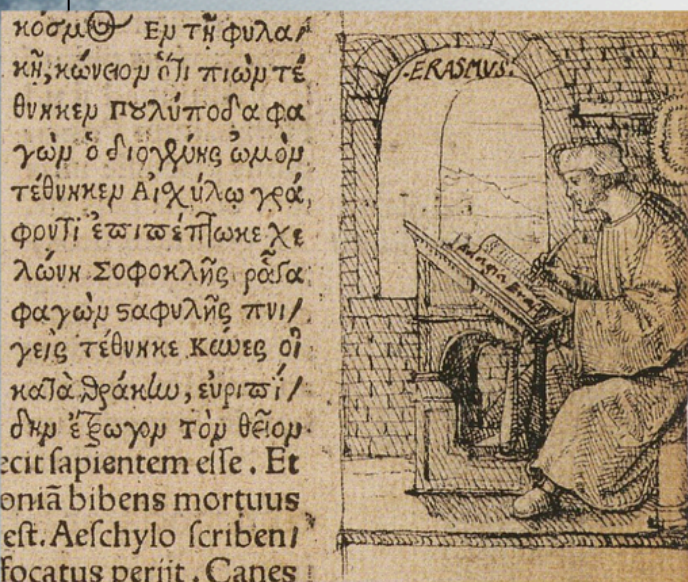 κόσμου Ἐν τῇ φυλα/
κῇ, κώνειον ὅτι πιὼν τέ
θνηκεν Πȣλύποδα φα
γὼν ὁ διογένης ὠμὸν
τέθνηκεν Αἰσχύλῳ γρά,
φοντι ἐπιπέπτωκε χε
λώνη Σοφοκλῆς ῥᾶγα
φαγὼν ϛαφυλῆς πνι/
γεὶς τέθνηκε Κύνες οἱ
κατὰ θράκην, ἐυριπί/
δην ἔτρωγον τὸν θεῖον
ecit ſapientem eſſe. Et
oniā bibens mortuus
eſt. Aeſchylo ſcriben/
focatus perijt. Canes
·ERASMUS·
Adagia